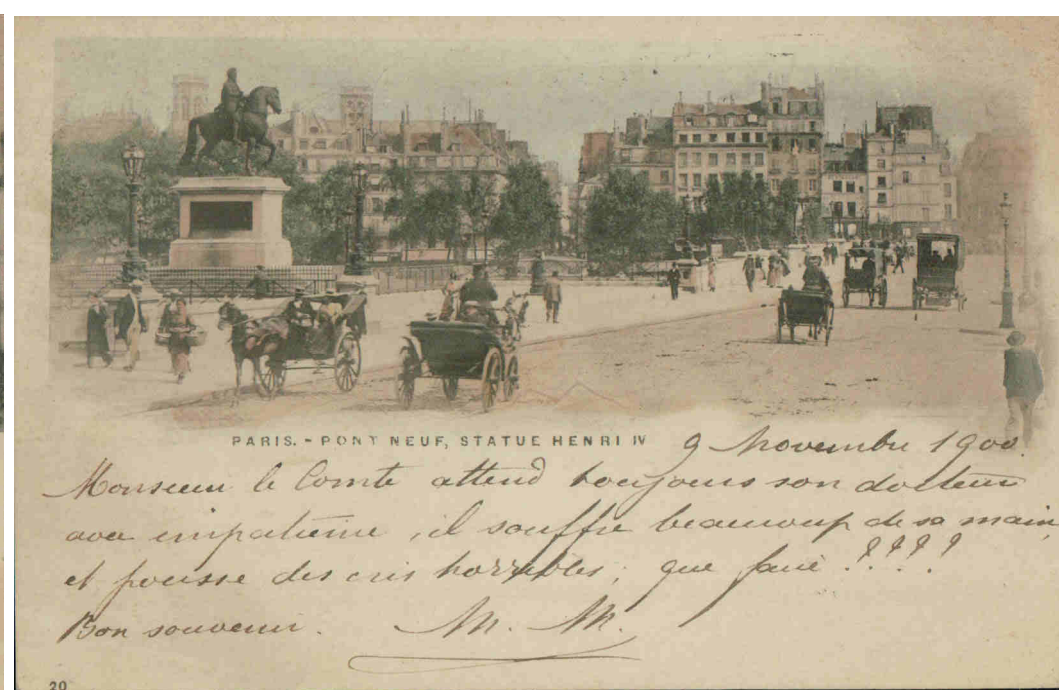 PARIS. - PONT NEUF, STATUE HENRI IV
9 Novembre 1900.
Monsieur le Comte attend toujours son docteur
avec impatience, il souffre beaucoup de sa main,
et pousse des cris horribles; que faire !???
Bon souvenir. M. M.
20